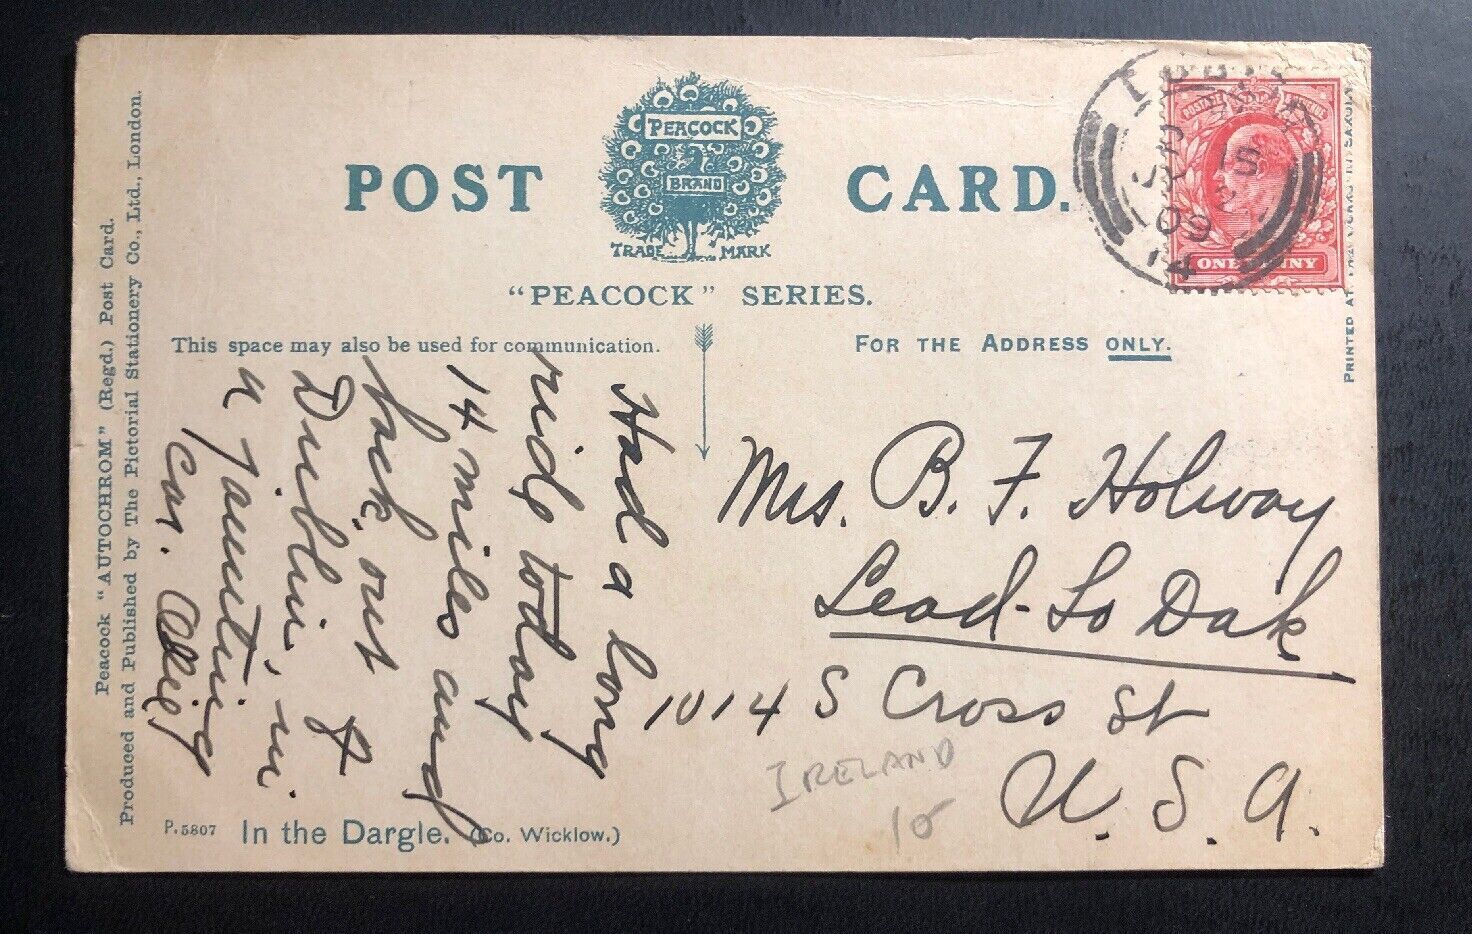 POST CARD.
PEACOCK
BRAND
TRADE MARK
"PEACOCK" SERIES.
This space may also be used for communication.
FOR THE ADDRESS ONLY.
Had a long
ride today
14 miles and
back out of
Dublin, in
a jaunting
car.
Mrs. B. F. Holway
Lead - So Dak
1014 S Cross St
U. S. A.
IRELAND
10
P.5807 In the Dargle. (Co. Wicklow.)
Peacock "AUTOCHROM" (Regd.) Post Card.
Produced and Published by The Pictorial Stationery Co., Ltd., London.
ONE PENNY
09
PRINTED AT